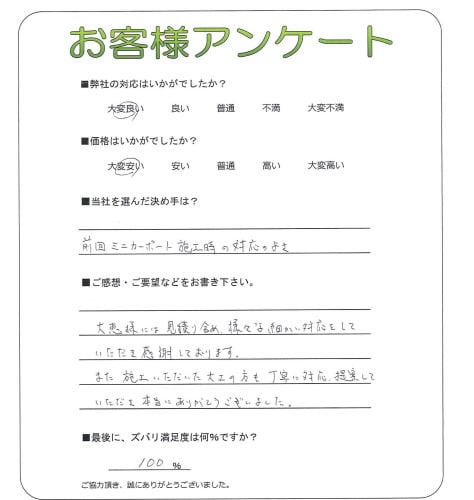 お客様アンケート
■弊社の対応はいかがでしたか？
大変良い 良い 普通 不満 大変不満
■価格はいかがでしたか？
大変安い 安い 普通 高い 大変高い
■当社を選んだ決め手は？
前回ミニカーポート施工時の対応のよさ
■ご感想・ご要望などをお書き下さい。
大恵様には見積り含め、様々な細かい対応をして
いただき感謝しております。
また施工いただいた大工の方も丁寧に対応、提案して
いただき本当にありがとうございました。
■最後に、ズバリ満足度は何%ですか？
100 %
ご協力頂き、誠にありがとうございました。